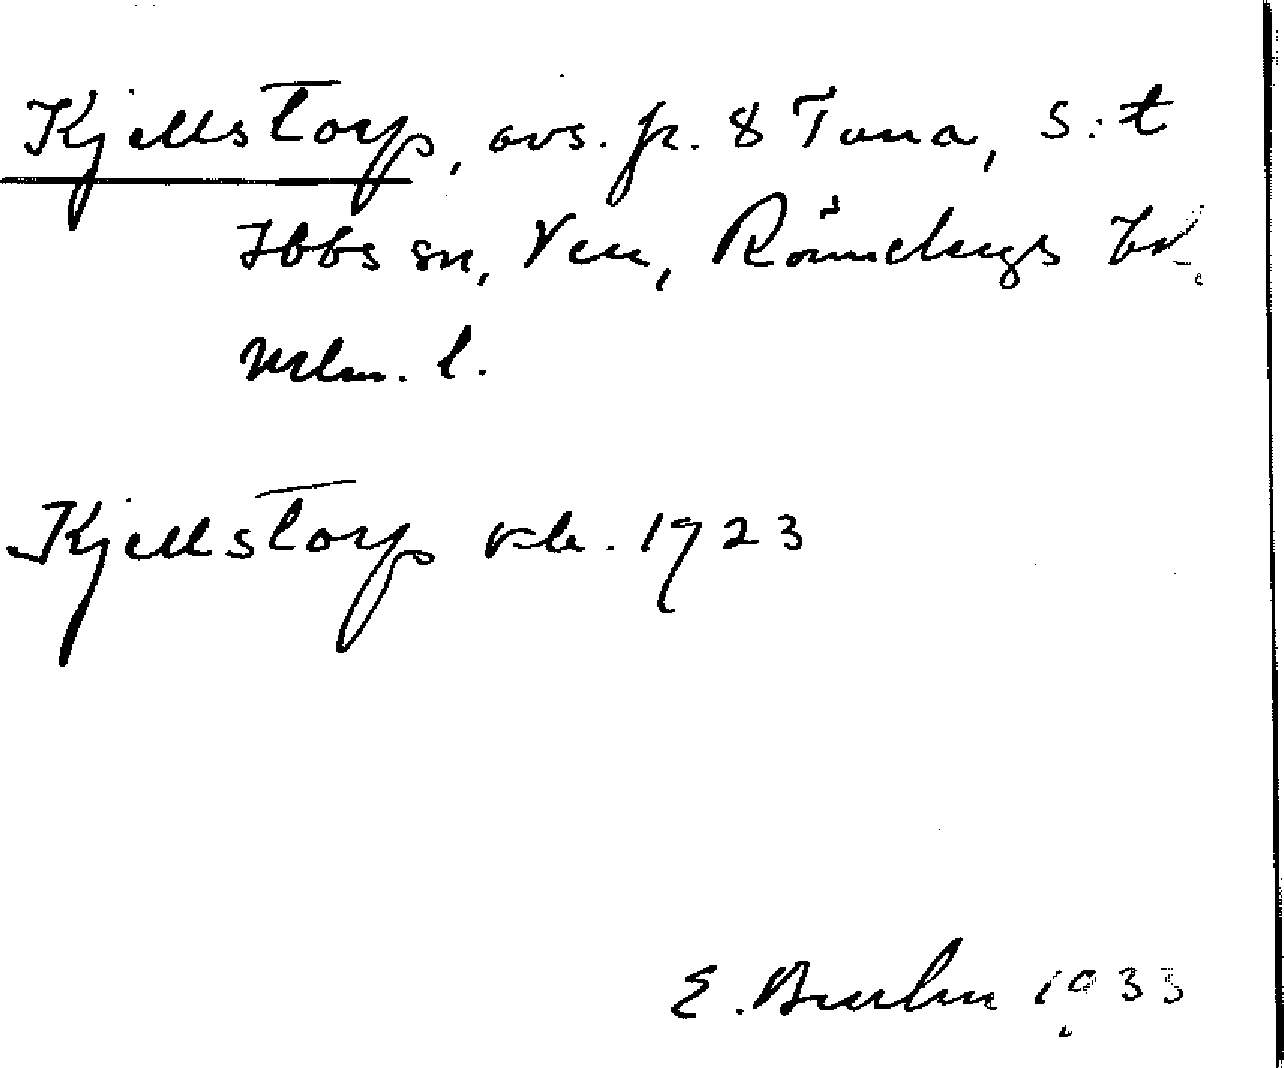 Kjellstorp, avs. fr. 8 Tuna, S:t
Ibbs sn, Ven, Rönnebergs hd.
Mlm. l.
Kjellstorp 1923
E. 1933